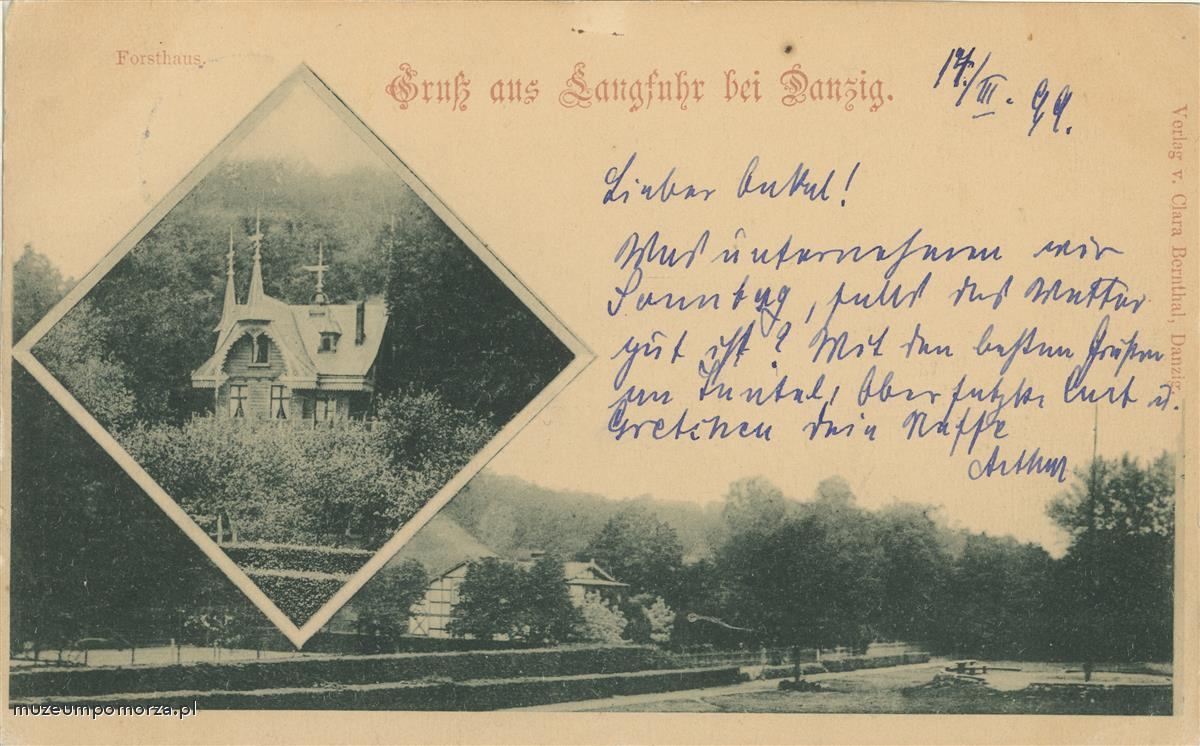 Forsthaus.
Gruß aus Langfuhr bei Danzig.
17./III. 99.
Lieber Onkel!
Was unternehmen wir
Sonntag, falls das Wetter
gut ist? Mit den besten Grüßen
an Curt u.
Gretchen dein Neffe
Arthur
Verlag v. Clara Bernthal, Danzig.
muzeumpomorza.pl